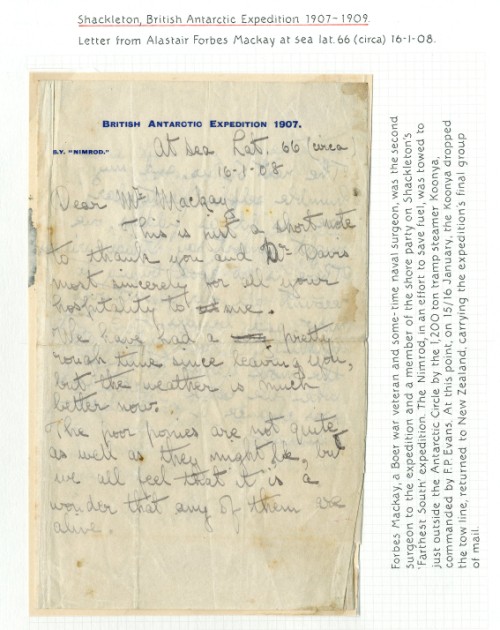 Shackleton, British Antarctic Expedition 1907-1909.
Letter from Alastair Forbes Mackay at sea lat. 66 (circa) 16-1-08.
BRITISH ANTARCTIC EXPEDITION 1907.
S.Y. "NIMROD."
At sea Lat. 66 circa
16-1-08
Dear Mr Mackay
This is just a short note
to thank you and Dr Davis
most sincerely for all your
hospitality to me.
We have had a pretty
rough time synce leaving you,
but the weather is much
better now.
The poor ponies are not quite
as well as they might be, but
we all feel that it is a
wonder that any of them are
alive.
Forbes Mackay, a Boer war veteran and some-time naval surgeon, was the second
surgeon to the expedition and a member of the shore party on Shackleton's
'Farthest South' expedition. The Nimrod, in an effort to save fuel, was towed to
just outside the Antarctic Circle by the 1,200 ton tramp steamer Koonya,
commanded by F.P. Evans. At this point, on 15/16 January, the Koonya dropped
the tow line, returned to New Zealand, carrying the expedition's final group
of mail.